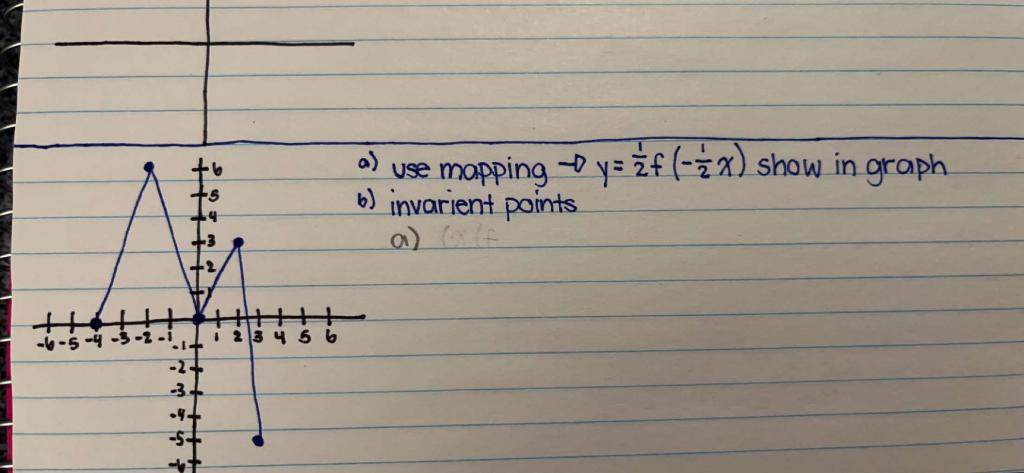 a) use mapping → y = 1/2 f (-1/2 x) show in graph
b) invarient points
a)
6
5
4
3
2
1
-6 -5 -4 -3 -2 -1 1 2 3 4 5 6
-1
-2
-3
-4
-5
-6